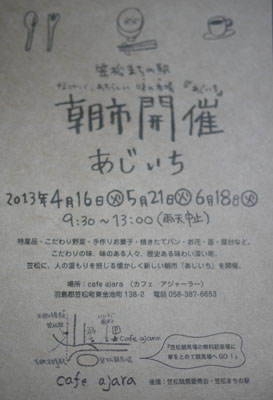 笠松まちの駅
なつかしく、あたらしい 味の市場 『あじいち』
朝市開催
あじいち
2013年4月16日㊋ 5月21日㊋ 6月18日㊋
9:30～13:00(雨天中止)
特産品・こだわり野菜・手作りお菓子・焼きたてパン・お花・器・屋台など、
こだわりの味、味のある人々、歴史ある味わい深い町。
笠松に、人の温もりを感じる懐かしく新しい朝市「あじいち」を開催。
場所：cafe ajara （カフェ アジャーラー）
羽島郡笠松町東金池町 138-2 電話 058-387-6653
cafe ajara
笠松競馬場
『笠松競馬場の無料駐車場に
車をとめて競馬場へGO！』
cafe ajara
後援：笠松競馬愛馬会・笠松まちの駅